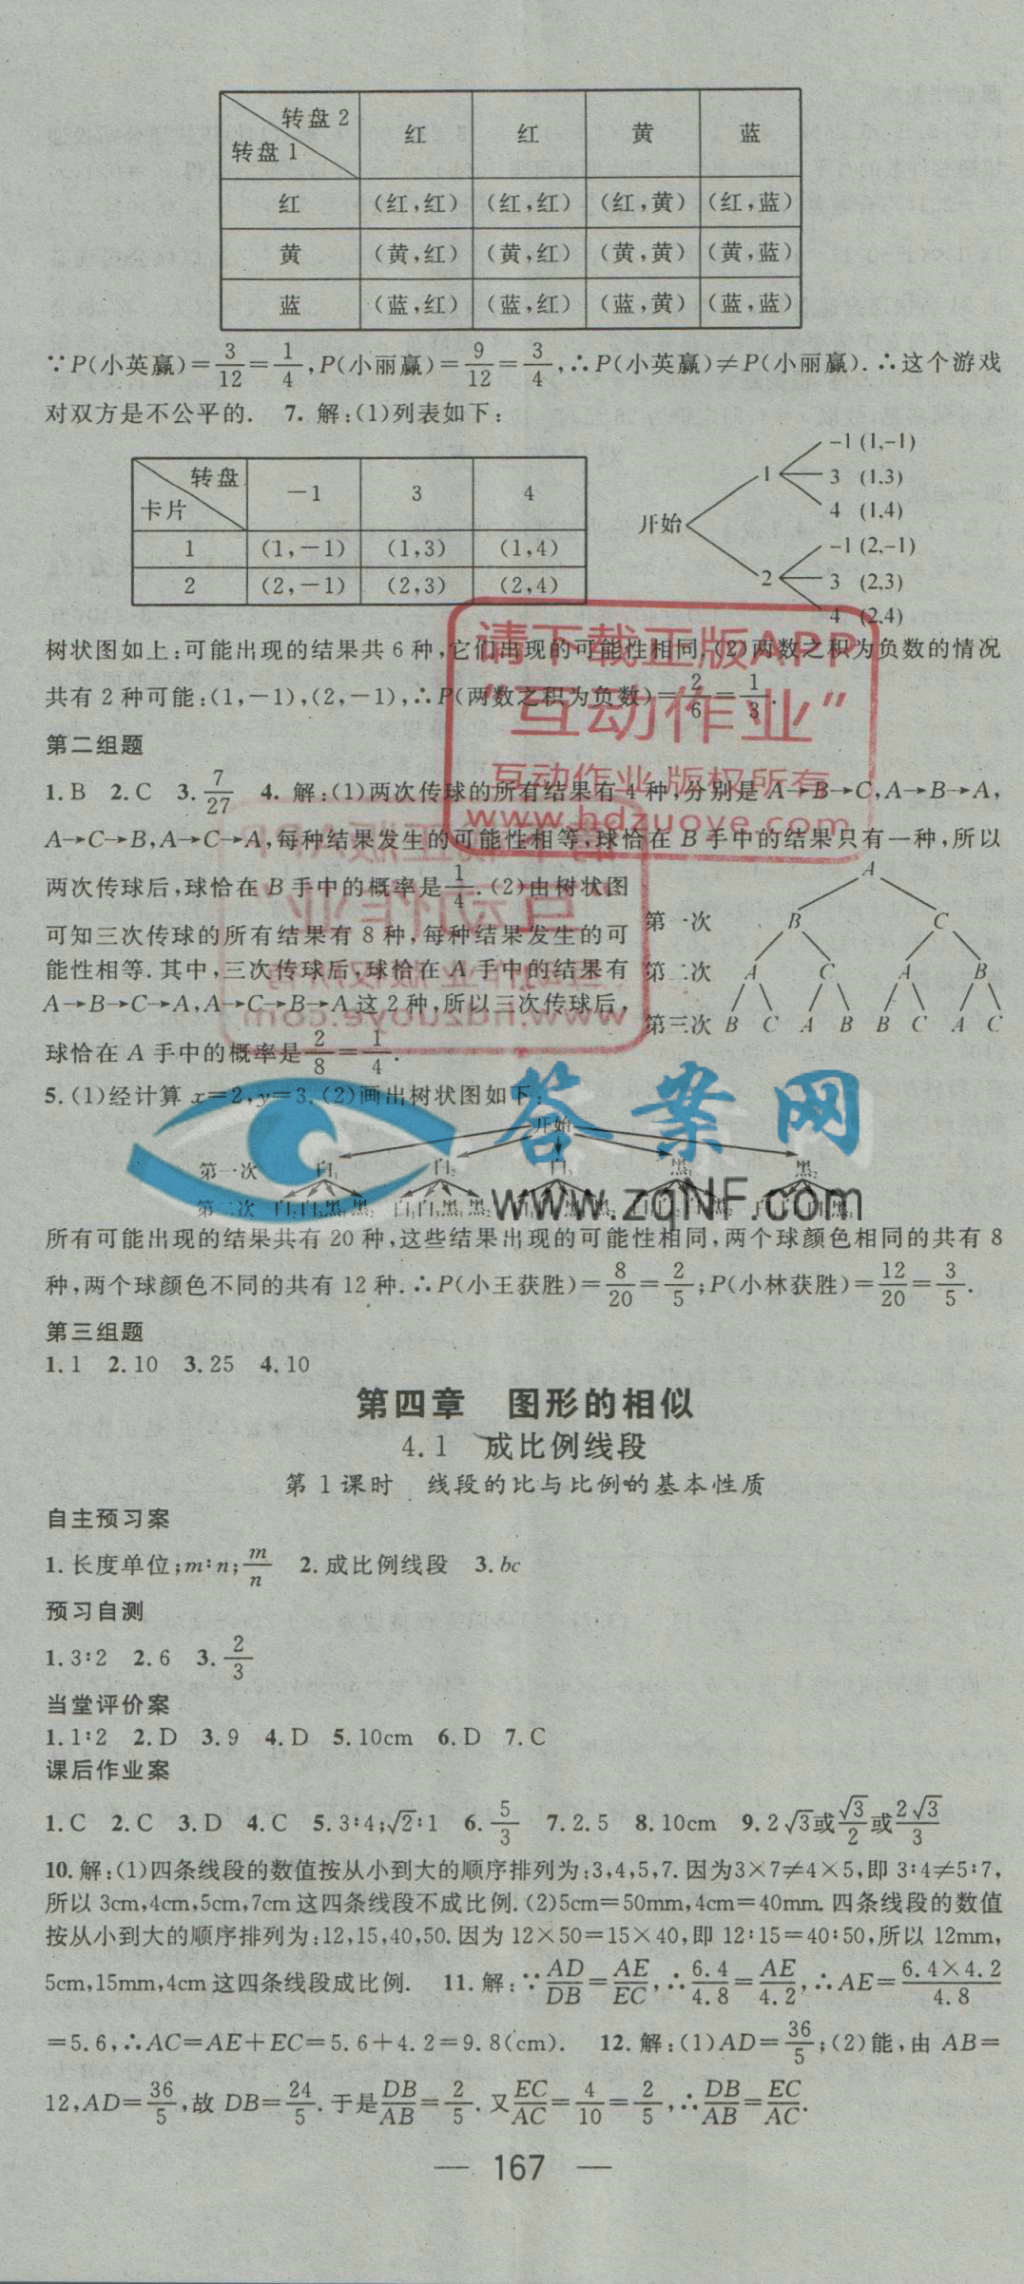 转盘2 红 红 黄 蓝
转盘1
红 (红,红) (红,红) (红,黄) (红,蓝)
黄 (黄,红) (黄,红) (黄,黄) (黄,蓝)
蓝 (蓝,红) (蓝,红) (蓝,黄) (蓝,蓝)
∵P(小英赢)=3/12=1/4,P(小丽赢)=9/12=3/4,∴P(小英赢)≠P(小丽赢).∴这个游戏
对双方是不公平的. 7. 解:(1)列表如下:
转盘 -1 3 4
卡片
1 (1,-1) (1,3) (1,4)
2 (2,-1) (2,3) (2,4)
开始
1
-1 (1,-1)
3 (1,3)
4 (1,4)
2
-1 (2,-1)
3 (2,3)
4 (2,4)
树状图如上:可能出现的结果共6种,它们出现的可能性相同.(2)两数之积为负数的情况
共有2种可能:(1,-1),(2,-1),∴P(两数之积为负数)=2/6=1/3.
请下载正版APP
“互动作业”
互动作业 版权所有
www.hdzuoye.com
第二组题
1.B 2.C 3.7/27 4. 解:(1)两次传球的所有结果有4种,分别是A→B→C,A→B→A,
A→C→B,A→C→A,每种结果发生的可能性相等,球恰在B手中的结果只有一种,所以
两次传球后,球恰在B手中的概率是1/4.(2)由树状图
可知三次传球的所有结果有8种,每种结果发生的可
能性相等.其中,三次传球后,球恰在A手中的结果有
A→B→C→A,A→C→B→A这2种,所以三次传球后,
球恰在A手中的概率是2/8=1/4.
A
第一次 B C
第二次 A C A B
第三次 B C A B B C A C
5.(1)经计算x=2,y=3.(2)画出树状图如下:
答案网
www.zqNF.com
开始
第一次 白 白 白 黑 黑
第二次
所有可能出现的结果共有20种,这些结果出现的可能性相同,两个球颜色相同的共有8
种,两个球颜色不同的共有12种.∴P(小王获胜)=8/20=2/5;P(小林获胜)=12/20=3/5.
第三组题
1.1 2.10 3.25 4.10
第四章 图形的相似
4.1 成比例线段
第1课时 线段的比与比例的基本性质
自主预习案
1.长度单位;m∶n;m/n 2.成比例线段 3.bc
预习自测
1.3∶2 2.6 3.2/3
当堂评价案
1.1∶2 2.D 3.9 4.D 5.10cm 6.D 7.C
课后作业案
1.C 2.C 3.D 4.C 5.3∶4;√2∶1 6.5/3 7.2.5 8.10cm 9.2√3或√3/2或2√3/3
10.解:(1)四条线段的数值按从小到大的顺序排列为:3,4,5,7.因为3×7≠4×5,即3∶4≠5∶7,
所以3cm,4cm,5cm,7cm这四条线段不成比例.(2)5cm=50mm,4cm=40mm.四条线段的数值
按从小到大的顺序排列为:12,15,40,50.因为12×50=15×40,即12∶15=40∶50,所以12mm,
5cm,15mm,4cm这四条线段成比例. 11.解:∵AD/DB=AE/EC,∴6.4/4.8=AE/4.2,∴AE=6.4×4.2/4.8
=5.6,∴AC=AE+EC=5.6+4.2=9.8(cm). 12.解:(1)AD=36/5;(2)能,由AB=
12,AD=36/5,故DB=24/5.于是DB/AB=2/5.又EC/AC=4/10=2/5,∴DB/AB=EC/AC.
— 167 —